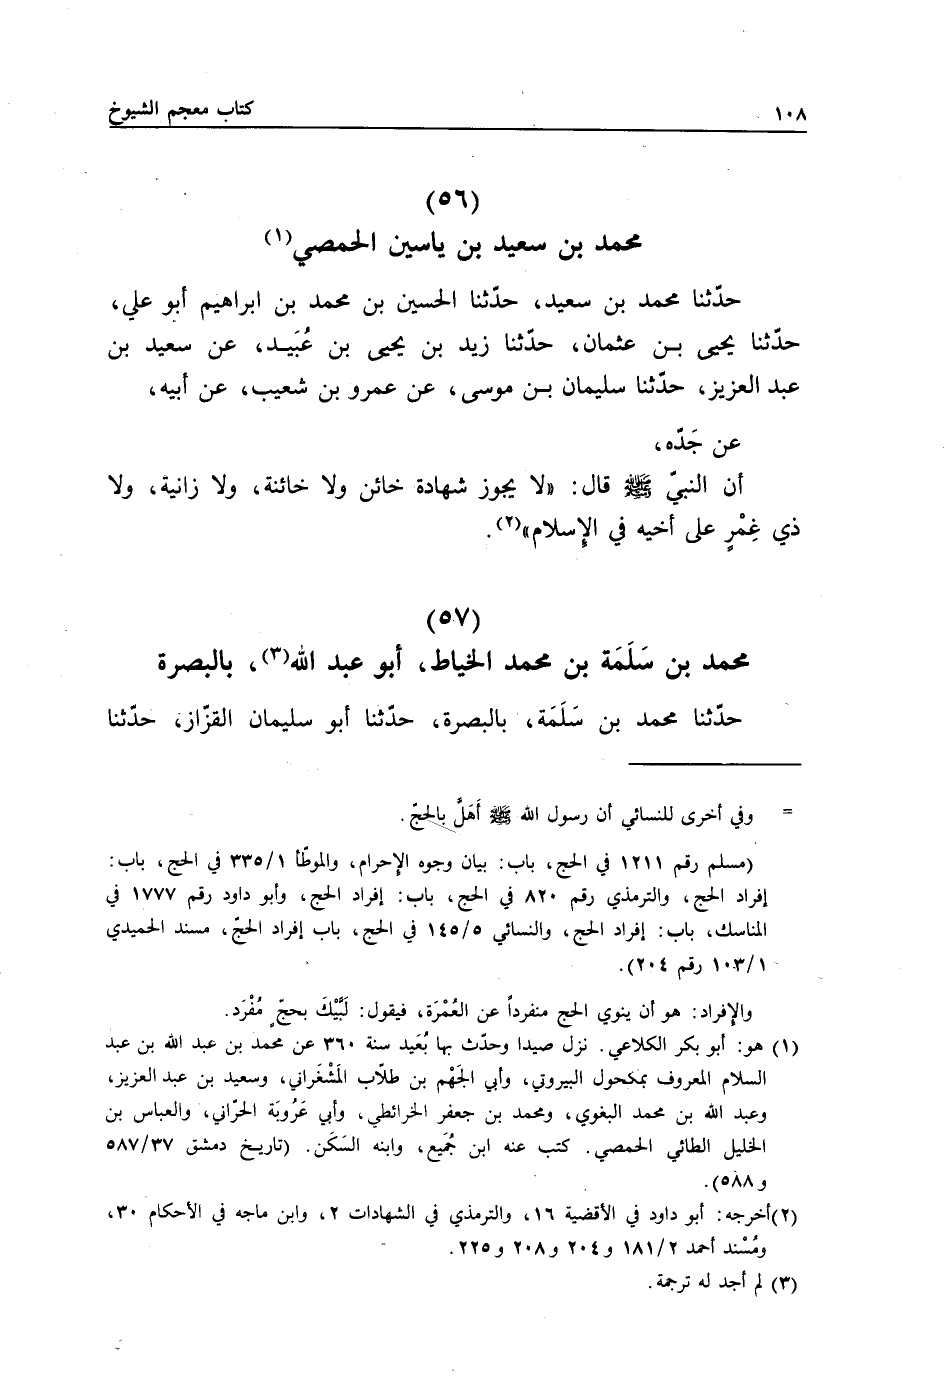 ١٠٨ كتاب معجم الشيوخ
(٥٦)
محمد بن سعيد بن ياسين الحمصي(١)
حدّثنا محمد بن سعيد، حدّثنا الحسين بن محمد بن ابراهيم أبو علي،
حدّثنا يحيى بـن عثمان، حدّثنا زيد بن يحيى بن عُبَيـد، عن سعيد بن
عبد العزيز، حدّثنا سليمان بـن موسى، عن عمرو بن شعيب، عن أبيه،
عن جَدّه،
أن النبيّ ﷺ قال: «لا يجوز شهادة خائن ولا خائنة، ولا زانية، ولا
ذي غِمْرٍ على أخيه في الإسلام»(٢).
(٥٧)
محمد بن سَلَمَة بن محمد الخياط، أبو عبد الله(٣)، بالبصرة
حدّثنا محمد بن سَلَمَة، بالبصرة، حدّثنا أبو سليمان القزّاز، حدّثنا
= وفي أخرى للنسائي أن رسول الله ﷺ أَهَلَّ بالحجّ.
(مسلم رقم ١٢١١ في الحج، باب: بيان وجوه الإحرام، والموطّأ ٣٣٥/١ في الحج، باب:
إفراد الحج، والترمذي رقم ٨٢٠ في الحج، باب: إفراد الحج، وأبو داود رقم ١٧٧٧ في
المناسك، باب: إفراد الحج، والنسائي ١٤٥/٥ في الحج، باب إفراد الحجّ، مسند الحميدي
١٠٣/١ رقم ٢٠٤).
والإفراد: هو أن ينوي الحج منفرداً عن العُمْرَة، فيقول: لَبَّيْكَ بحجّ مُفْرَد.
(١) هو: أبو بكر الكلاعي. نزل صيدا وحدّث بها بُعَيد سنة ٣٦٠ عن محمد بن عبد الله بن عبد
السلام المعروف بمكحول البيروتي، وأبي الجَهْم بن طلّاب المَشْغَراني، وسعيد بن عبد العزيز،
وعبد الله بن محمد البغوي، ومحمد بن جعفر الخرائطي، وأبي عَرُوبَة الحَرّاني، والعباس بن
الخليل الطائي الحمصي. كتب عنه ابن جُمَيع، وابنه السَكَن. (تاريخ دمشق ٥٨٧/٣٧
و٥٨٨).
(٢) أخرجه: أبو داود في الأقضية ١٦، والترمذي في الشهادات ٢، وابن ماجه في الأحكام ٣٠،
ومُسْند أحمد ١٨١/٢ و٢٠٤ و٢٠٨ و٢٢٥.
(٣) لم أجد له ترجمة.